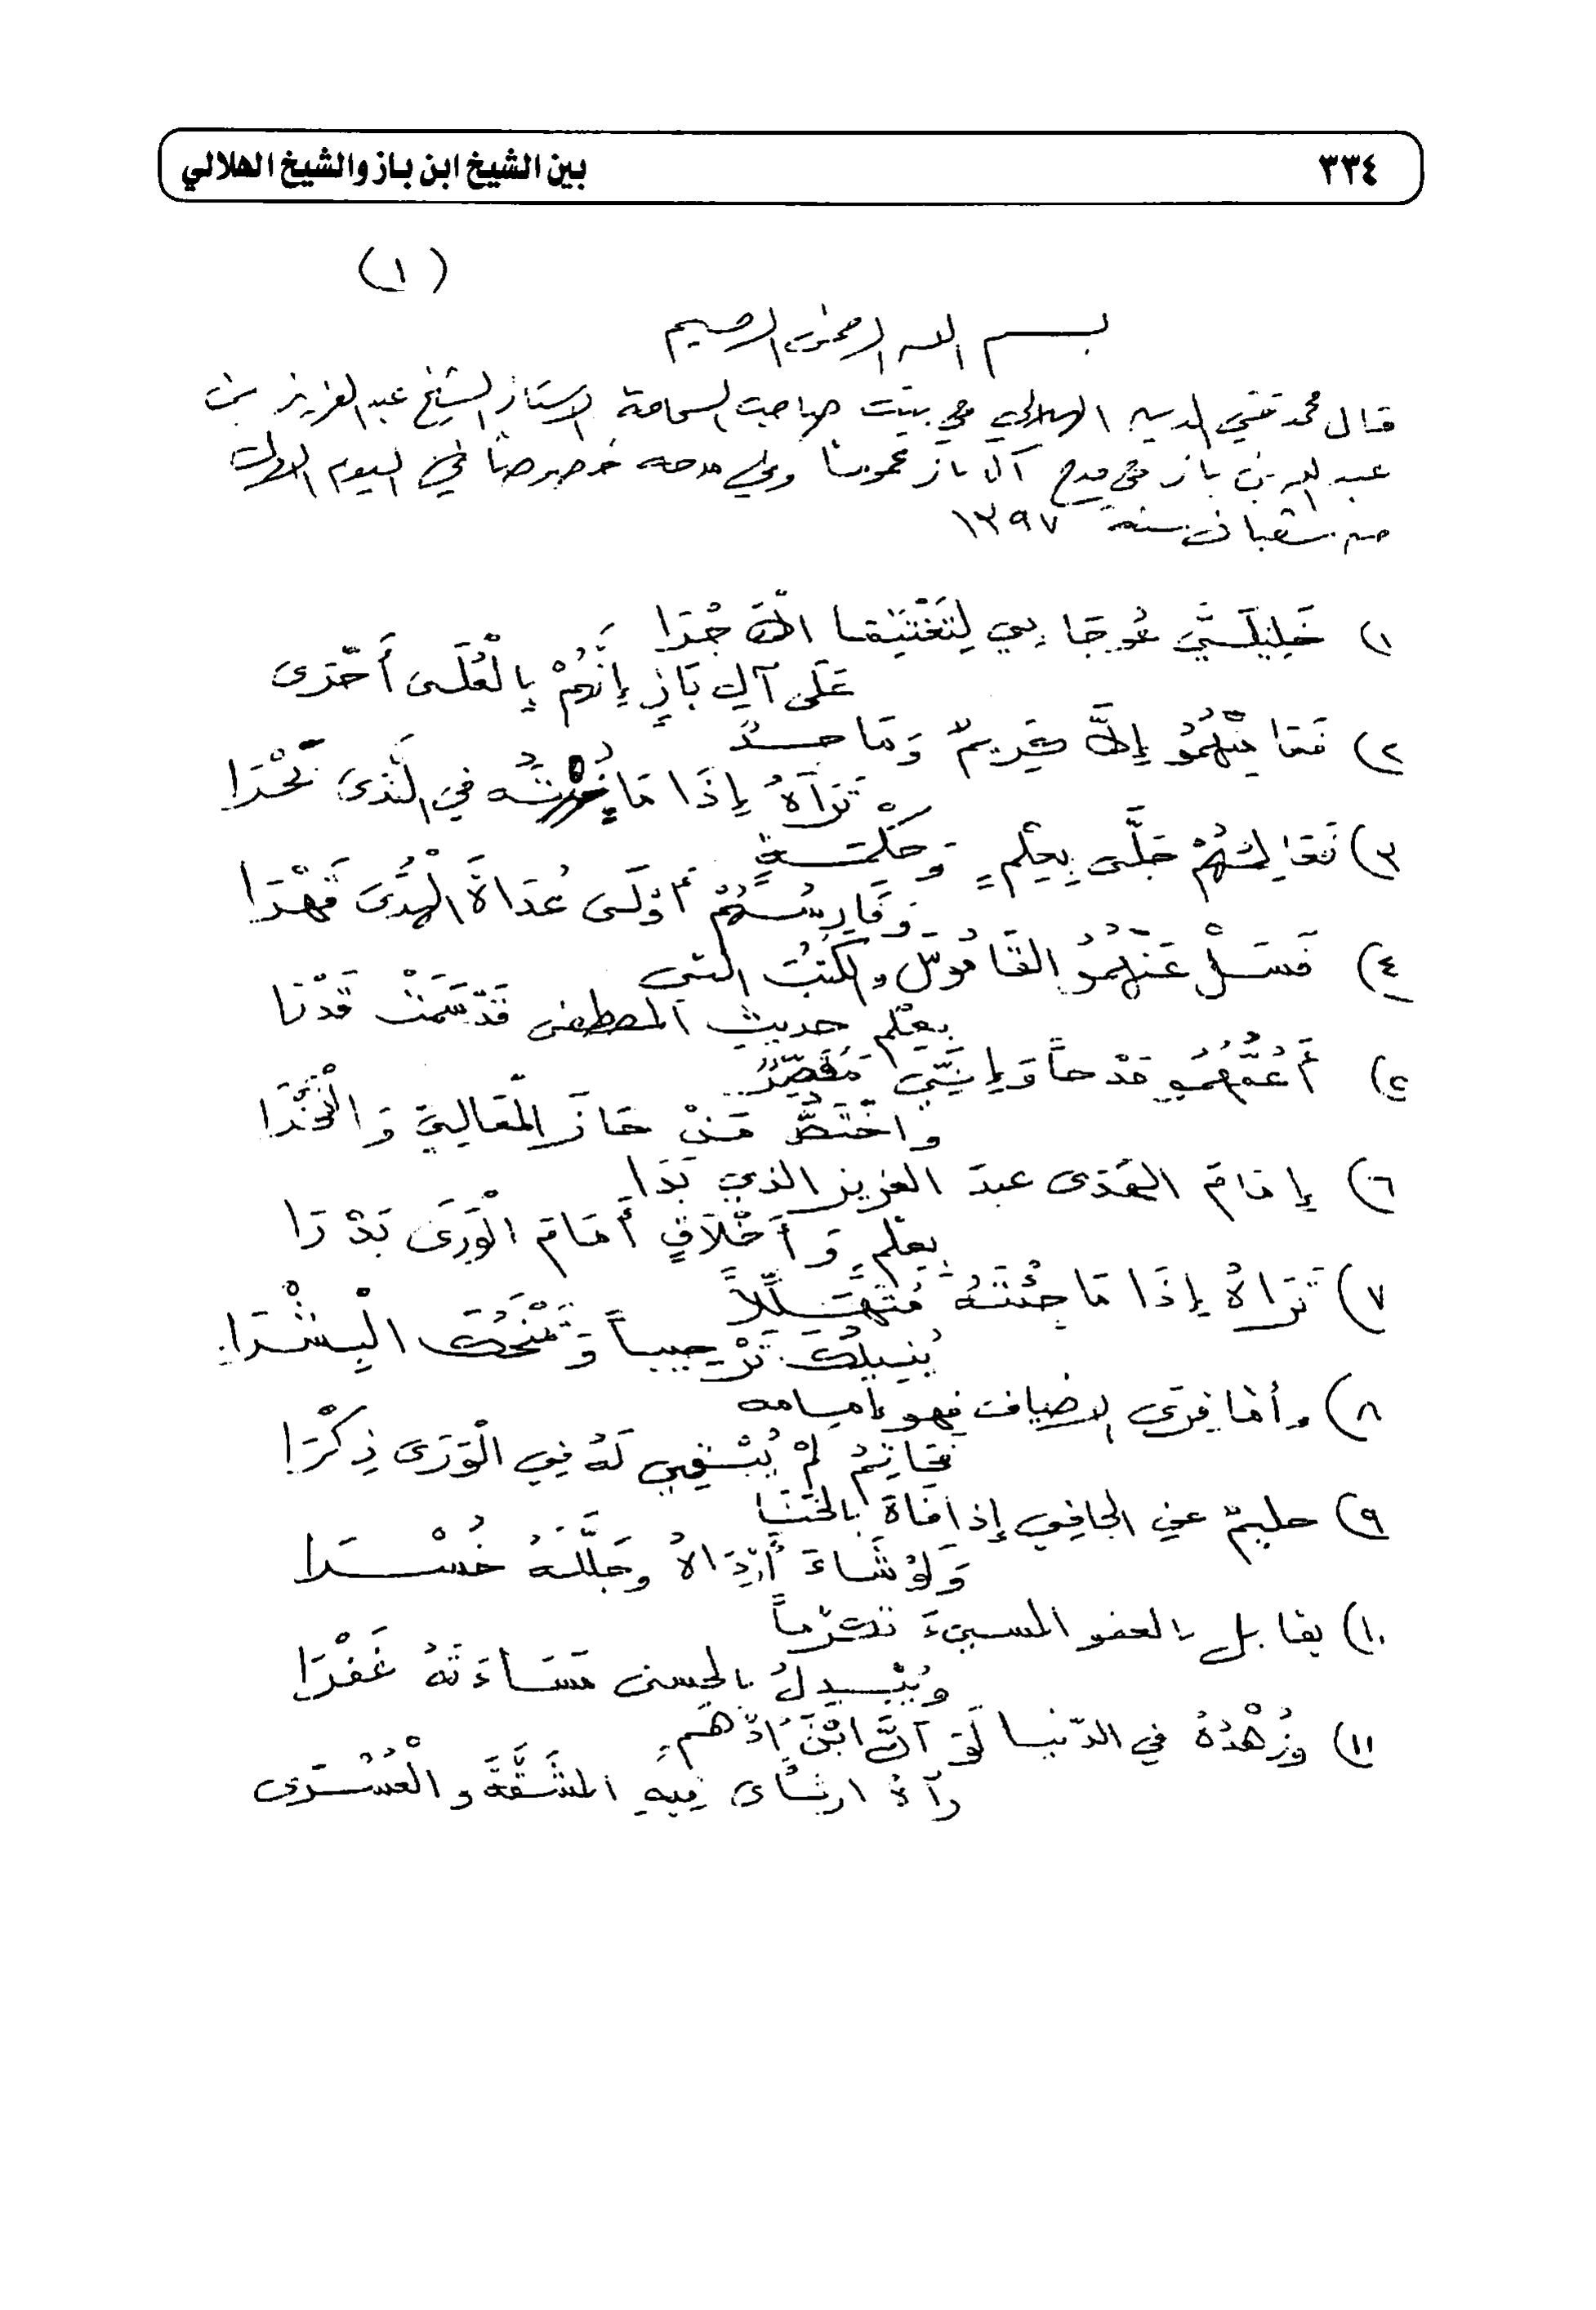 ٣٣٤
بين الشيخ ابن باز والشيخ الهلالي
(١)
بسم الله الرحمن الرحيم
قال محمد تقي الدين الهلالي في بيت صاحب السماحة الاستاذ الشيخ عبد العزيز بن
عبد الله بن باز في مدح آل باز عموما وفي مدحه خصوصاً في اليوم الاول
من شعبان سنة ١٣٩٧
١) خَلِيلَيَّ عُوجَا بِي لِنَغْتَنِمَا الْأَجْرَا
عَلَى آلِ بَازٍ إِنَّهُمْ بِالْعُلَى أَحْرَى
٢) فَمَا مِنْهُمُو إِلَّا كَرِيمٌ وَمَاجِدٌ
تَرَاهُ إِذَا مَا زُرْتَه في النَّدَى بَحْرَا
٣) فَعَالِمُهُمْ جَلَّى بِعِلْمٍ وَحِكْمَةٍ
وَفَارِسُهُمْ أَوْلَى عُدَاةَ الْهُدَى قَهْرَا
٤) فَسَلْ عَنْهُمُو الْقَامُوسَ والكُتْبَ التي
بِعِلْمِ حديثِ المصطفى قَدْ سَمَتْ قَدْرَا
٥) أَعُمُّهُمُو مَدْحاً وَإِنِّي مُقَصِّرٌ
وَأَخْتَصُّ مَنْ حَازَ الْمَعَالِيَ وَالْفَخْرَا
٦) إِمَامَ الْهُدَى عبدَ العزيز الذي بَدَا
بِعِلْمٍ وَأَخْلَاقٍ أَمَامَ الْوَرَى بَدْرَا
٧) تَرَاهُ إِذَا مَا جِئْتَهُ مُتَهَلِّلاً
يُنِيلُكَ تَرْحِيباً وَيَمْنَحُكَ الْبِشْرَا
٨) وأما قِرَى الاضياف فهو إمامه
فَحَاتِمُ لَمْ يُبْقِي لَهُ فِي الْوَرَى ذِكْرَا
٩) حليمٌ عن الجافي إذا فَاهَ بالْخَنَا
وَلَوْ شَاءَ أَرْدَاهُ وجَلَّلَهُ خُسْرَا
١٠) يقابل بالعفو المسيءَ تكرّماً
ويُبْدِلُ بالحسنى مَسَاءَتَهُ غَفْرَا
١١) وزُهْدُهُ في الدّنيا لَوَ أنَّ ابْنَ أدْهَمٍ
رآهُ ارتَأى فِيهِ المَشَقَّةَ والْعُسْرَى